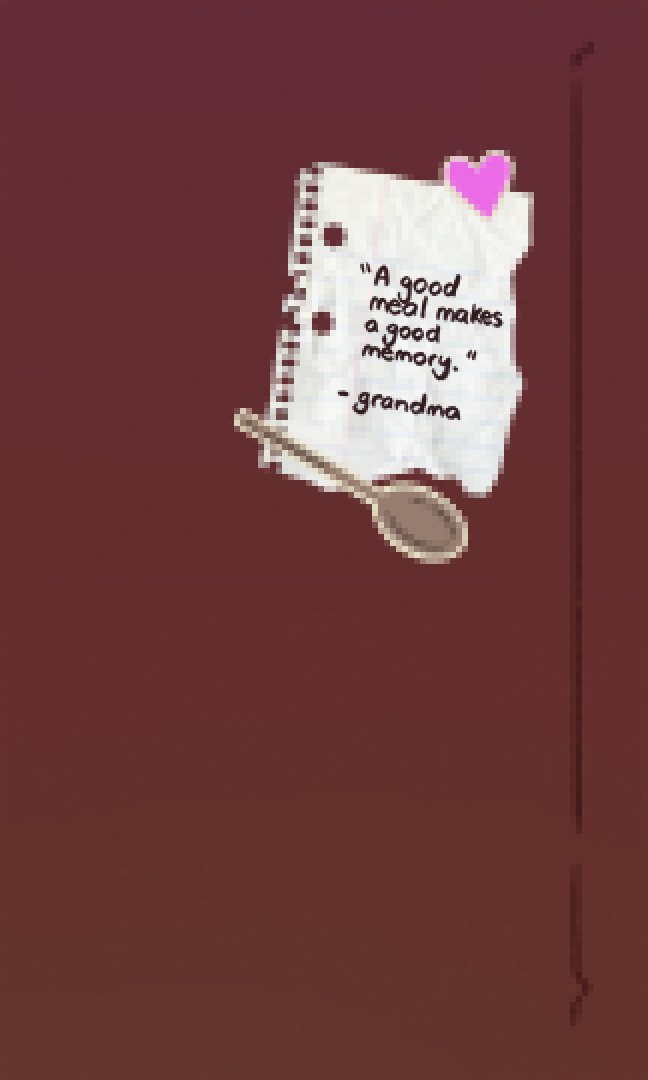 "A good
meal makes
a good
memory."
- grandma